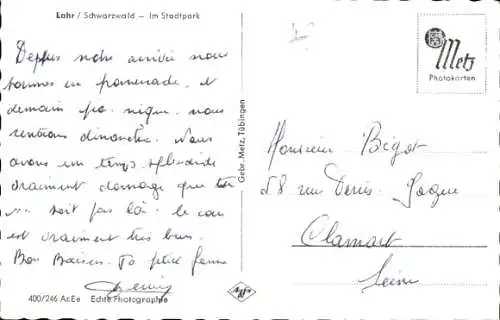 Lahr / Schwarzwald — Im Stadtpark
Depuis notre arrivée nous
sommes en promenade. et
demain pic-nique. nous
rentrons dimanche. Nous
avons un temps splendide
vraiment domage que tu
soit pas là. le
est vraiment très bon.
Bon Baiser. Ta petite femme
400/246 AcEe Echte Photographie
Gebr. Metz, Tübingen
Metz
Photokarten
Monsieur Bigot
58 rue Denis
Clamart
Seine